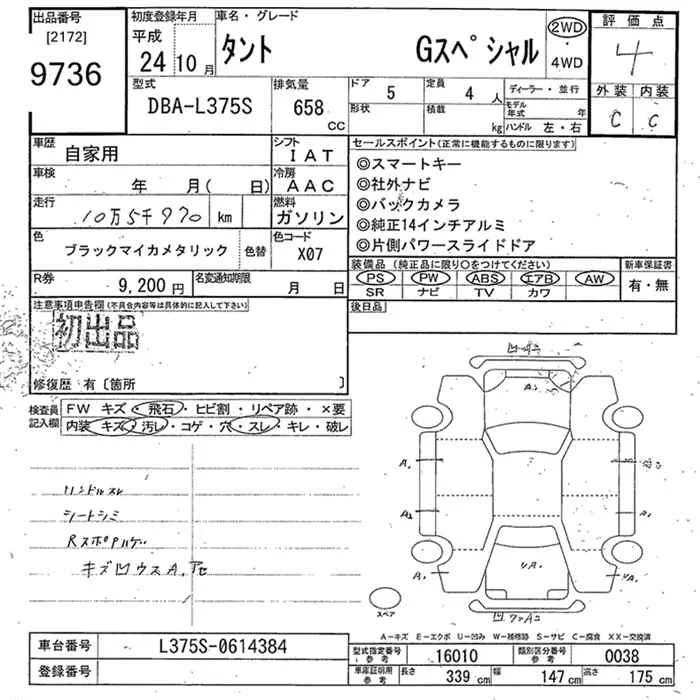 出品番号
[2172]
9736
初度登録年月
平成
24 10 月
車名・グレード
タント Gスペシャル
2WD
・
4WD
評価点
4
外装 内装
C C
型式
DBA-L375S
排気量
658
CC
ドア 5
形状
定員 4 人
積載 kg
ディーラー・並行
モデル年式 年
ハンドル 左・右
車歴 自家用
シフト IAT
車検 年 月( 日)
冷房 AAC
走行 10万5千970 km
燃料 ガソリン
色 ブラックマイカメタリック 色替
色コード X07
R券 9,200 円
名変通知期限 月 日
セールスポイント(正常に機能するものに限ります)
◎スマートキー
◎社外ナビ
◎バックカメラ
◎純正14インチアルミ
◎片側パワースライドドア
装備品(純正品に限り○をつけてください)
PS PW ABS エアB AW
SR ナビ TV カワ
新車保証書
有・無
後日品
注意事項申告欄(不具合内容等は具体的に記入して下さい)
初出品
修復歴 有〔箇所 〕
検査員記入欄
FW キズ・飛石・ヒビ割・リペア跡・×要
内装 キズ・汚レ・コゲ・穴・スレ・キレ・破レ
ハンドルスレ
シートシミ
キズ凹ウスA,
A₁
A₁
A₂
A₁
スペア
A-キズ E-エクボ U-凹み W-補修跡 S-サビ C-腐食 XX-交換済
車台番号 L375S-0614384
登録番号
型式指定番号 参考 16010
類別区分番号 参考 0038
車庫証明用 参考 長さ 339 cm 幅 147 cm 高さ 175 cm